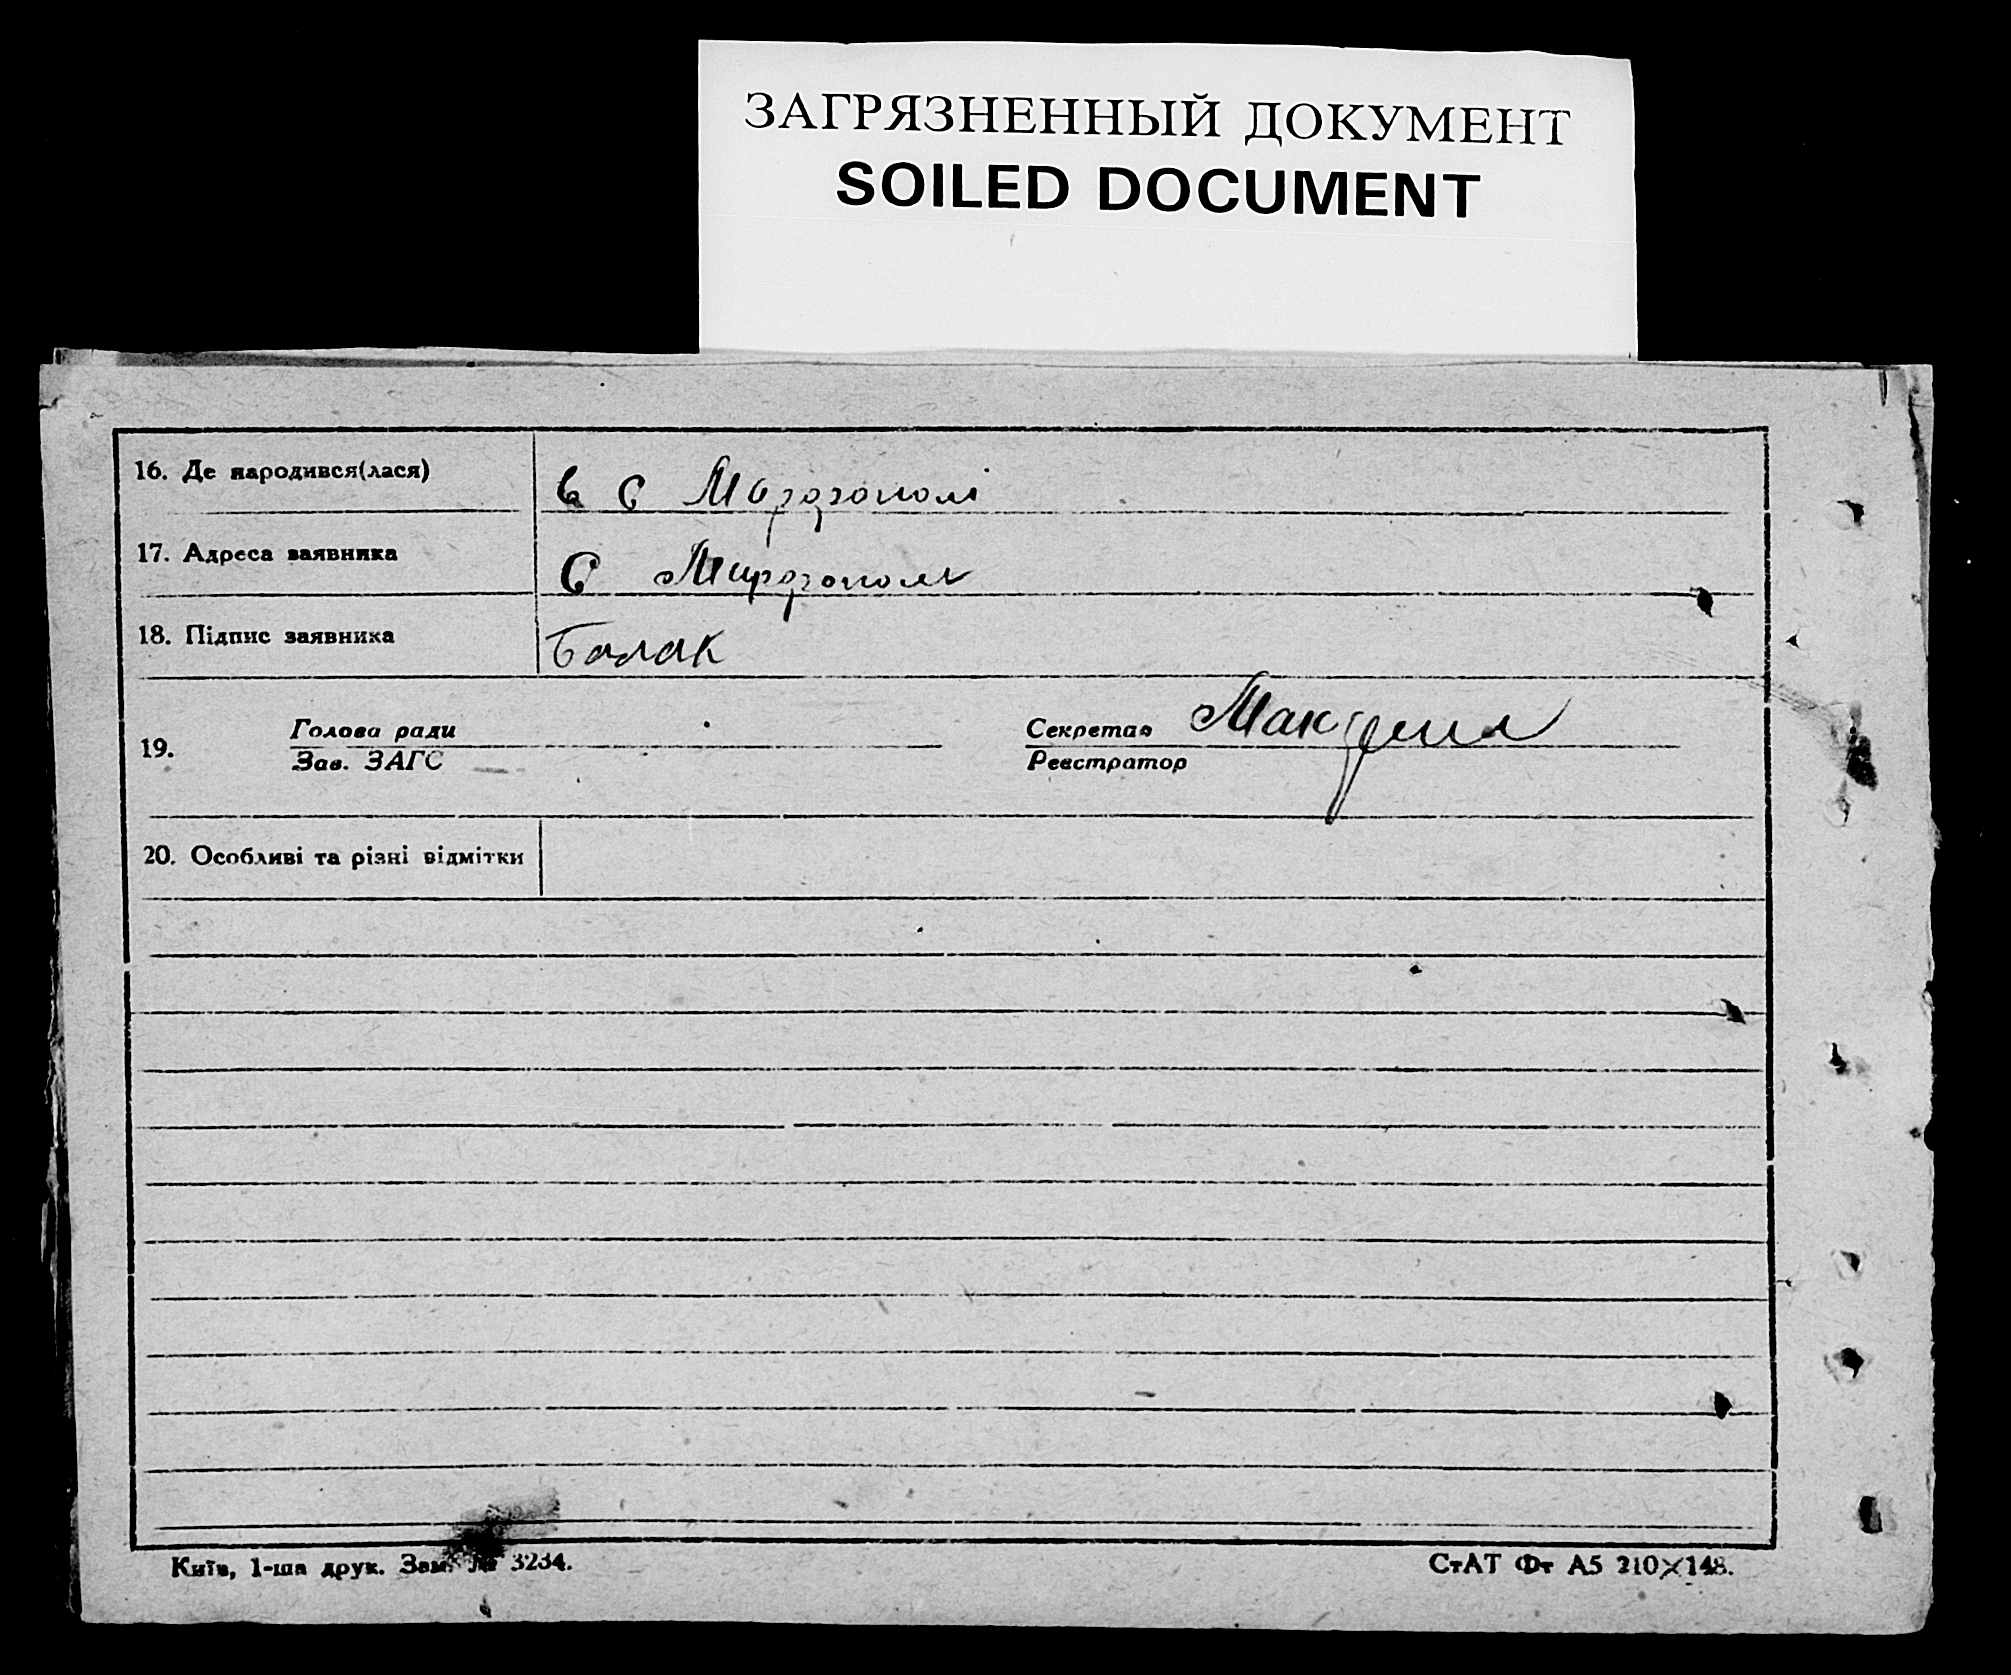 ЗАГРЯЗНЕННЫЙ ДОКУМЕНТ
SOILED DOCUMENT
16. Де народився(лася)
в с
17. Адреса заявника
С
18. Підпис заявника
Балак
19.
Голова ради
Зав. ЗАГС
Секретар
Реєстратор
20. Особливі та різні відмітки
Київ, 1-ша друк. Зам. № 3234.
СтАТ Фт А5 210×148.